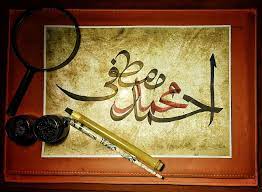 احمد محمد مصطفی